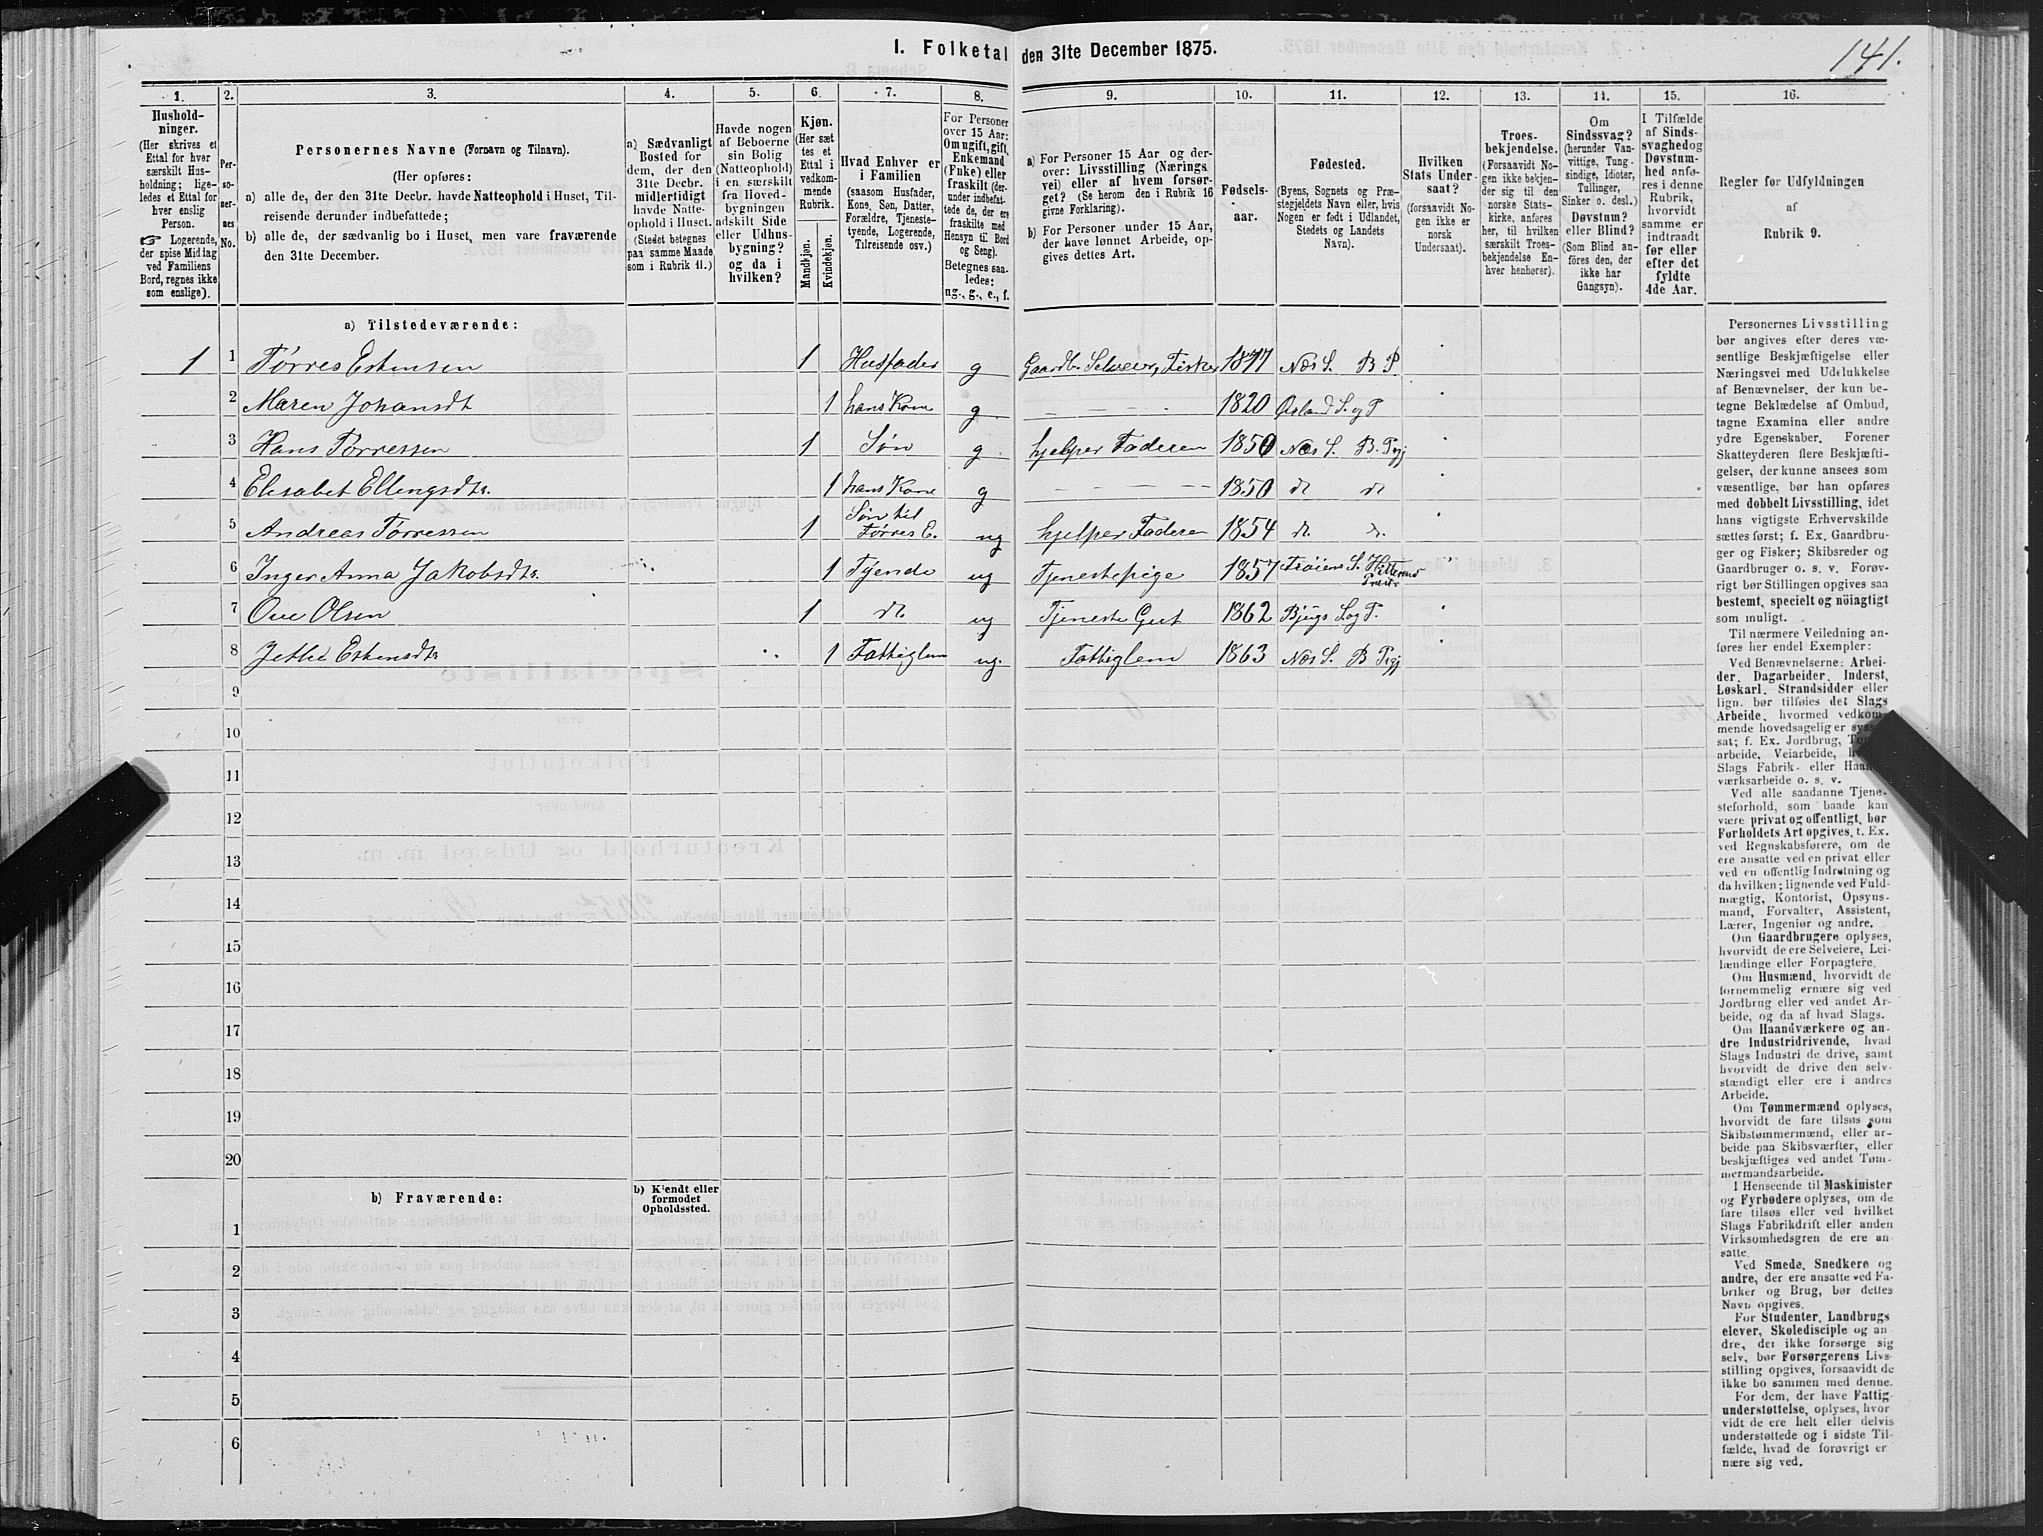 1. Folketal den 31te December 1875.
141.
1.
2.
3.
4.
5.
6.
7.
8.
9.
10.
11.
12.
13.
14.
15.
16.
Hushold-
ninger.
(Her skrives et
Ettal for hver
særskilt Hus-
holdning; lige-
ledes et Ettal for
hver enslig
Person.
☞ Logerende,
der spise Middag
ved Familiens
Bord, regnes ikke
som enslige).
Per-
so-
ner-
nes
No.
Personernes Navne (Fornavn og Tilnavn).
(Her opføres:
a) alle de, der den 31te Decbr. havde Natteophold i Huset, Til-
reisende derunder indbefattede;
b) alle de, der sædvanlig bo i Huset, men vare fraværende
den 31te December.
a) Sædvanligt
Bosted for
dem, der den
31te Decbr.
midlertidigt
havde Natte-
ophold i Huset.
(Stedet betegnes
paa samme Maade
som i Rubrik 11.)
Havde nogen
af Beboerne
sin Bolig
(Natteophold)
i en særskilt
fra Hoved-
bygningen
adskilt Side-
eller Udhus-
bygning?
og da i
hvilken?
Kjøn.
(Her sæt-
tes et
Ettal i
vedkom-
mende
Rubrik.
Mandkjøn.
Kvindekjøn.
Hvad Enhver er
i Familien
(saasom Husfader,
Kone, Søn, Datter,
Forældre, Tjeneste-
tyende, Logerende,
Tilreisende osv.)
For Personer
over 15 Aar:
Om ugift, gift,
Enkemand
(Enke) eller
fraskilt (der-
under indbefat-
tede de, der ere
fraskilte med
Hensyn til Bord
og Seng).
Betegnes saa-
ledes:
ug., g., e., f.
a) For Personer 15 Aar og der-
over: Livsstilling (Nærings
vei) eller af hvem forsør-
get? (Se herom den i Rubrik 16
givne Forklaring).
b) For Personer under 15 Aar,
der have lønnet Arbeide, op-
gives dettes Art.
Fødsels-
aar.
Fødested.
(Byens, Sognets og Præ-
stegjeldets Navn eller, hvis
Nogen er født i Udlandet,
Stedets og Landets
Navn).
Hvilken
Stats Under-
saat?
(forsaavidt No-
gen ikke er
norsk
Undersaat).
Troes-
bekjendelse.
(Forsaavidt No-
gen ikke bekjen-
der sig til den
norske Stats-
kirke, anføres
her, til hvilken
særskilt Troes-
bekjendelse En-
hver henhører).
Om
Sindssvag?
(herunder Van-
vittige, Tung-
sindige, Idioter,
Tullinger,
Sinker o. desl.)
Døvstum?
eller Blind?
(Som Blind an-
føres den, der
ikke har
Gangsyn).
I Tilfælde
af Sinds-
svaghed og
Døvstum-
hed anfø-
res i denne
Rubrik,
hvorvidt
samme er
indtraadt
før eller
efter det
fyldte
4de Aar.
Regler for Udfyldningen
af
Rubrik 9.
a) Tilstedeværende:
1 1 Tørres Estensen 1 Husfader g Gaardb. Selveier, Fisker 1817 Næs S. B P
2 Maren Johansdt 1 hans Kone g — — — 1820 Ørland S. og P
3 Hans Tørressen 1 Søn g. hjelper Faderen 1850 Næs S. B. Pgj
4 Elisabet Ellingsdtr. 1 hans Kone g — — — 1850 do do
5 Andreas Tørressen 1 Søn til Tørres E. ug hjelper Faderen 1854 do. do.
6 Inger Anna Jakobsdtr. 1 Tyende ug Tjenestepige 1857 Frøiens S. Hitterens Præstg
7 Ove Olsen 1 do. ug Tjeneste Gut 1862 Bjugs S og P.
8 Jethe Estensdtr 1 Fattiglem ug. Fattiglem 1863 Næs S. B Pgj
9
10
11
12
13
14
15
16
17
18
19
20
b) Fraværende:
b) Kjendt eller
formodet
Opholdssted.
1
2
3
4
5
6
Personernes Livsstilling
bør angives efter deres væ-
sentlige Beskjæftigelse eller
Næringsvei med Udelukkelse
af Benævnelser, der kun be-
tegne Beklædelse af Ombud,
tagne Examina eller andre
ydre Egenskaber. Forener
Skatteyderen flere Beskjæfti-
gelser, der kunne ansees som
væsentlige, bør han opføres
med dobbelt Livsstilling, idet
hans vigtigste Erhvervskilde
sættes først; f. Ex. Gaardbru-
ger og Fisker; Skibsreder og
Gaardbruger o. s. v. Forøv-
rigt bør Stillingen opgives saa
bestemt, specielt og nöiagtigt
som muligt.
Til nærmere Veiledning an-
føres her endel Exempler:
Ved Benævnelserne: Arbei-
der, Dagarbeider, Inderst,
Løskarl, Strandsidder eller
lign. bør tilføies det Slags
Arbeide, hvormed vedkom-
mende hovedsagelig er syssel-
sat; f. Ex. Jordbrug, Tømmer-
arbeide, Veiarbeide, hvad
Slags Fabrik- eller Haand-
værksarbeide o. s. v.
Ved alle saadanne Tjene-
steforhold, som baade kan
være privat og offentligt, bør
Forholdets Art opgives, t. Ex.
ved Regnskabsførere, om de
ere ansatte ved en privat eller
ved en offentlig Indretning og
da hvilken; lignende ved Fuld-
mægtig, Kontorist, Opsyns-
mand, Forvalter, Assistent,
Lærer, Ingeniør og andre.
Om Gaardbrugere oplyses,
hvorvidt de ere Selveiere, Lei-
lændinge eller Forpagtere.
Om Husmænd, hvorvidt de
fornemmelig ernære sig ved
Jordbrug eller ved andet Ar-
beide, og da af hvad Slags.
Om Haandværkere og an-
dre Industridrivende, hvad
Slags Industri de drive, samt
hvorvidt de drive den selv-
stændigt eller ere i andres
Arbeide.
Om Tømmermænd oplyses,
hvorvidt de fare tilsøs som
Skibstømmermænd, eller ar-
beide paa Skibsværfter, eller
beskjæftiges ved andet Tøm-
mermandsarbeide.
I Henseende til Maskinister
og Fyrbødere oplyses, om de
fare tilsøs eller ved hvilket
Slags Fabrikdrift eller anden
Virksomhedsgren de ere an-
satte.
Ved Smede, Snedkere og
andre, der ere ansatte ved Fa-
briker og Brug, bør dettes
Navn opgives.
For Studenter, Landbrugs
elever, Skoledisciple og an-
dre, der ikke forsørge sig
selv, bør Forsørgerens Livs-
stilling opgives, forsaavidt de
ikke bo sammen med denne.
For dem, der have Fattig-
understøttelse, oplyses, hvor-
vidt de ere helt eller delvis
understøttede og i sidste Til-
fælde, hvad de forøvrigt er
nære sig ved.